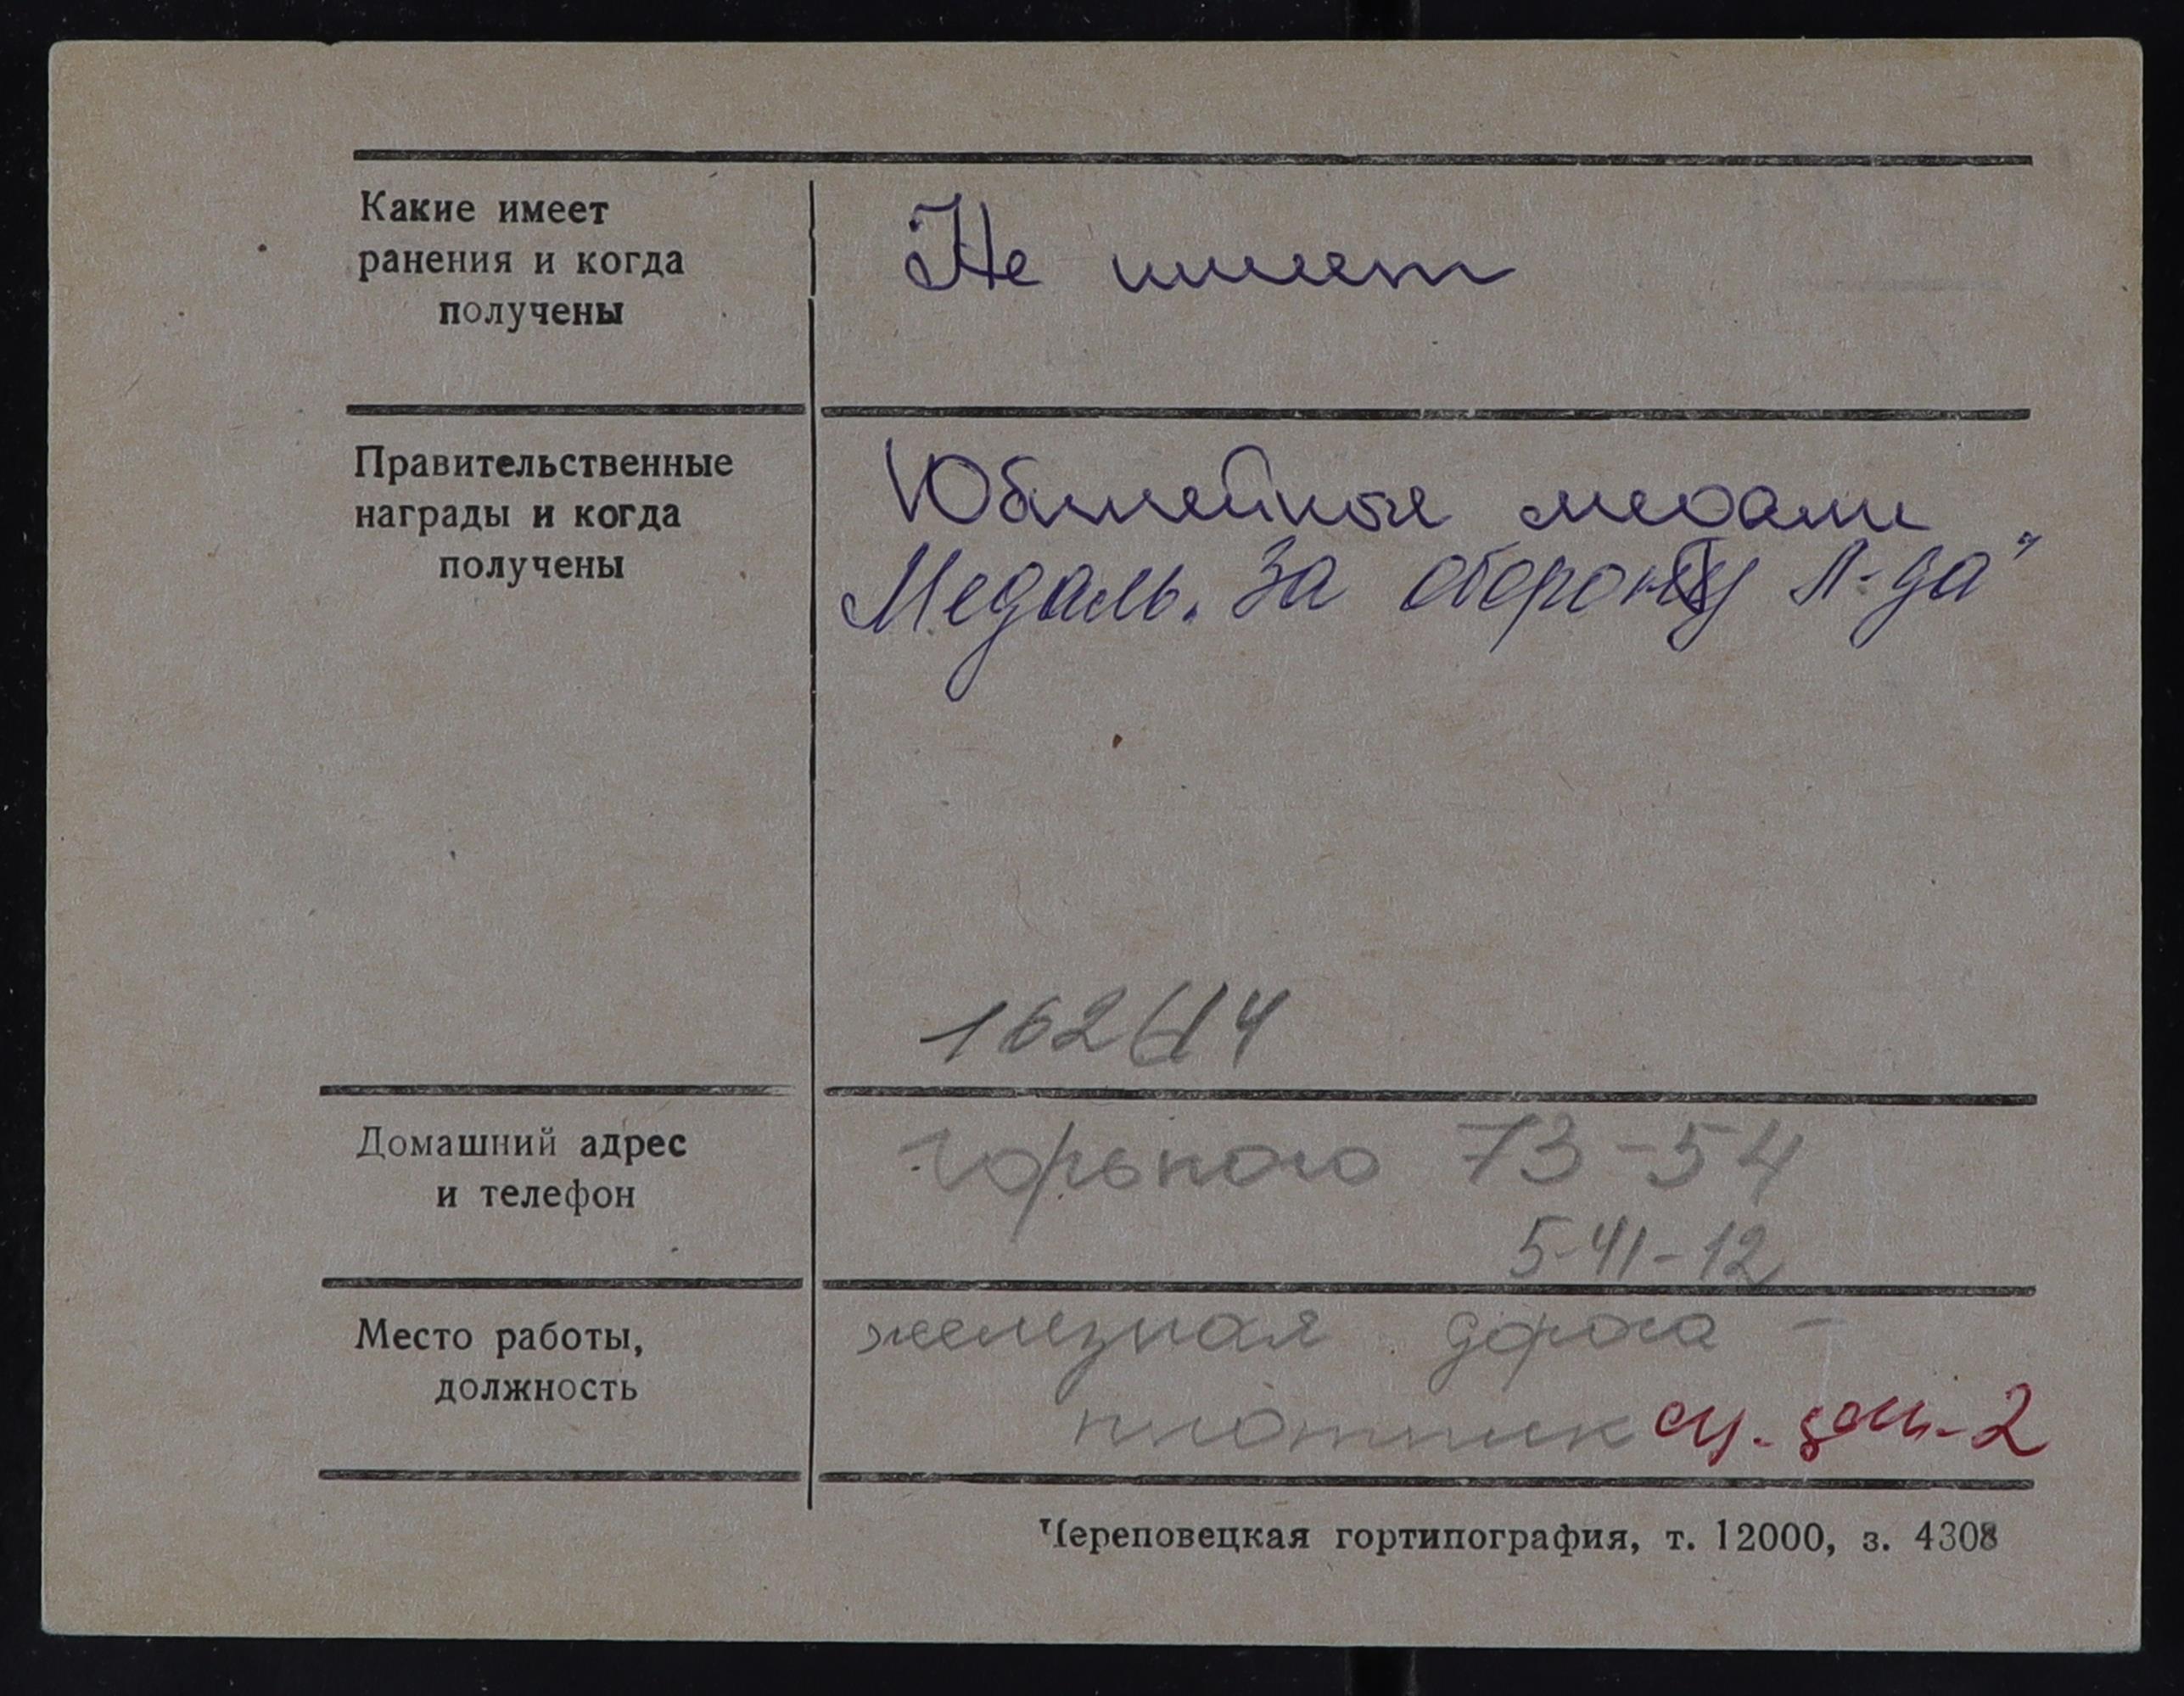 Какие имеет
ранения и когда
получены
Не имеет
Правительственные
награды и когда
получены
Юбилейные медали
Медаль „За оборону Л-да"
Домашний адрес
и телефон
Горького 73-54
5-41-12
Место работы,
должность
железная дорога -
плотник
Череповецкая гортипография, т. 12000, з. 4308